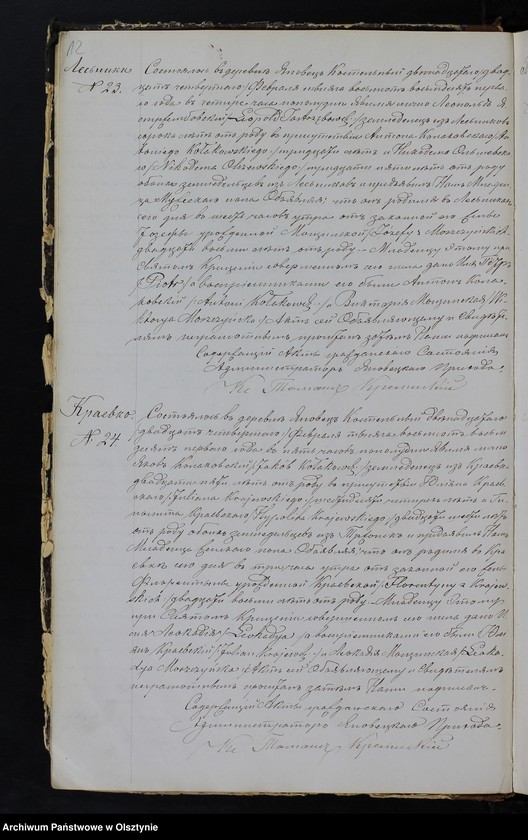 12
Лесьники
№ 23.
Состоялось въ деревнѣ Яновецъ Костельный двенадцатаго/двад-
цать четвертаго/Февраля тысяча восемьсотъ восемьдесятъ перва-
го года въ четыре часа пополудни явился лично Леопольдъ Я
/Leopold / земледелецъ изъ Лесьниковъ
сорока летъ отъ роду въ присутствіи Антона Колаковскаго/An-
toniego Kołakowskiego/ тридцати летъ и Никодема
/Nikodema / тридцати пяти летъ отъ роду
обоихъ земледельцевъ изъ Лесьниковъ и предъявилъ Намъ Младен-
ца Мужескаго пола Объявляя; что онъ родился въ Лесьникахъ
сего дня въ шесть часовъ утра отъ законной его жены
Іозефы урожденной /Józefy z
двадцати восьми летъ отъ роду – Младенцу Этому при
Святомъ Крещеніи совершенномъ сего числа дано Имя Петръ
/Piotr/ а воспріемниками его были Антонъ Кола-
ковскій /Antoni Kołakowski/ и Викторія /Wi-
ktorya / Актъ сей Объявляющему и Свидѣте-
лямъ неграмотнымъ прочтенъ затемъ Нами подписанъ
Содержащій Акты гражданскаго Состоянія
Администраторъ Яновецкаго Прихода.
Кс Томашъ
Краевко
№ 24
Состоялось въ деревнѣ Яновецъ Костельный двенадцатаго
/двадцать четвертаго/Февраля тысяча восемьсотъ восемь-
десятъ перваго года въ пять часовъ пополудни явился лично
Яковъ Колаковскій /Jakób Kołakowski/ земледелецъ изъ Краева
двадцати летъ отъ роду въ присутствіи Юліяна Краев-
скаго /Juliana Krajewskiego/ шестидесяти четырехъ летъ и Ги-
полита Краевскаго /Hypolita Krajewskiego/ двадцати летъ
отъ роду обоихъ земледельцевъ изъ и предъявилъ Намъ
Младенца Женскаго пола Объявляя; что онъ родился въ Кра-
евке сего дня въ три часа утра отъ законной его жены
Флорентыны урожденной Краевской /Florentyny z Krajew-
skich/ двадцати восьми летъ отъ роду – Младенцу Этому
при Святомъ Крещеніи совершенномъ сего числа дано И
мя Леокадія /Leokadya/ а воспріемниками его были Юлі-
янъ Краевскій /Julian Krajewski/ и Леокадія /Leoka-
dya / Актъ сей Объявляющему и Свидѣтелямъ
неграмотнымъ прочтенъ затемъ Нами подписанъ.
Содержащій Акты гражданскаго Состоянія
Администраторъ Яновецкаго Прихода.
Кс Томашъ
Archiwum Państwowe w Olsztynie